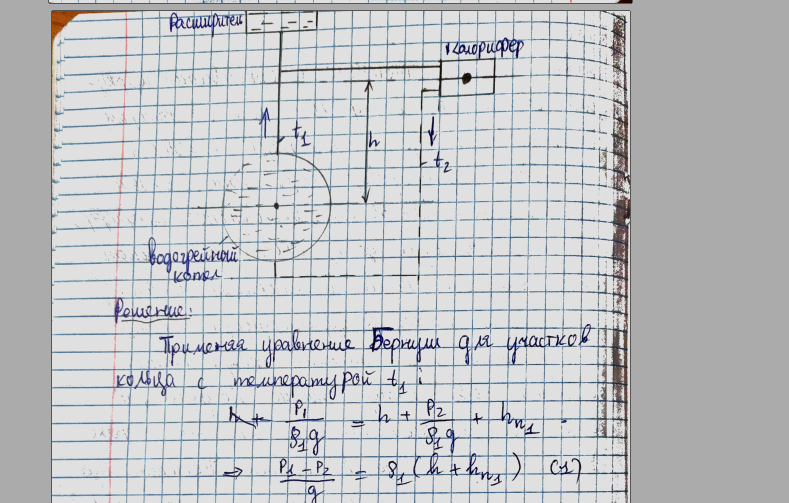 Расширитель
Калорифер
t₁
h
t₂
Водогрейный
котёл
Решение:
Применяя уравнение Бернулли для участков
кольца с температурой t₁:
h + P₁/ρ₁g = h + P₂/ρ₁g + hп₁
⇒ P₁ – P₂/g = ρ₁(h + hп₁) (1)